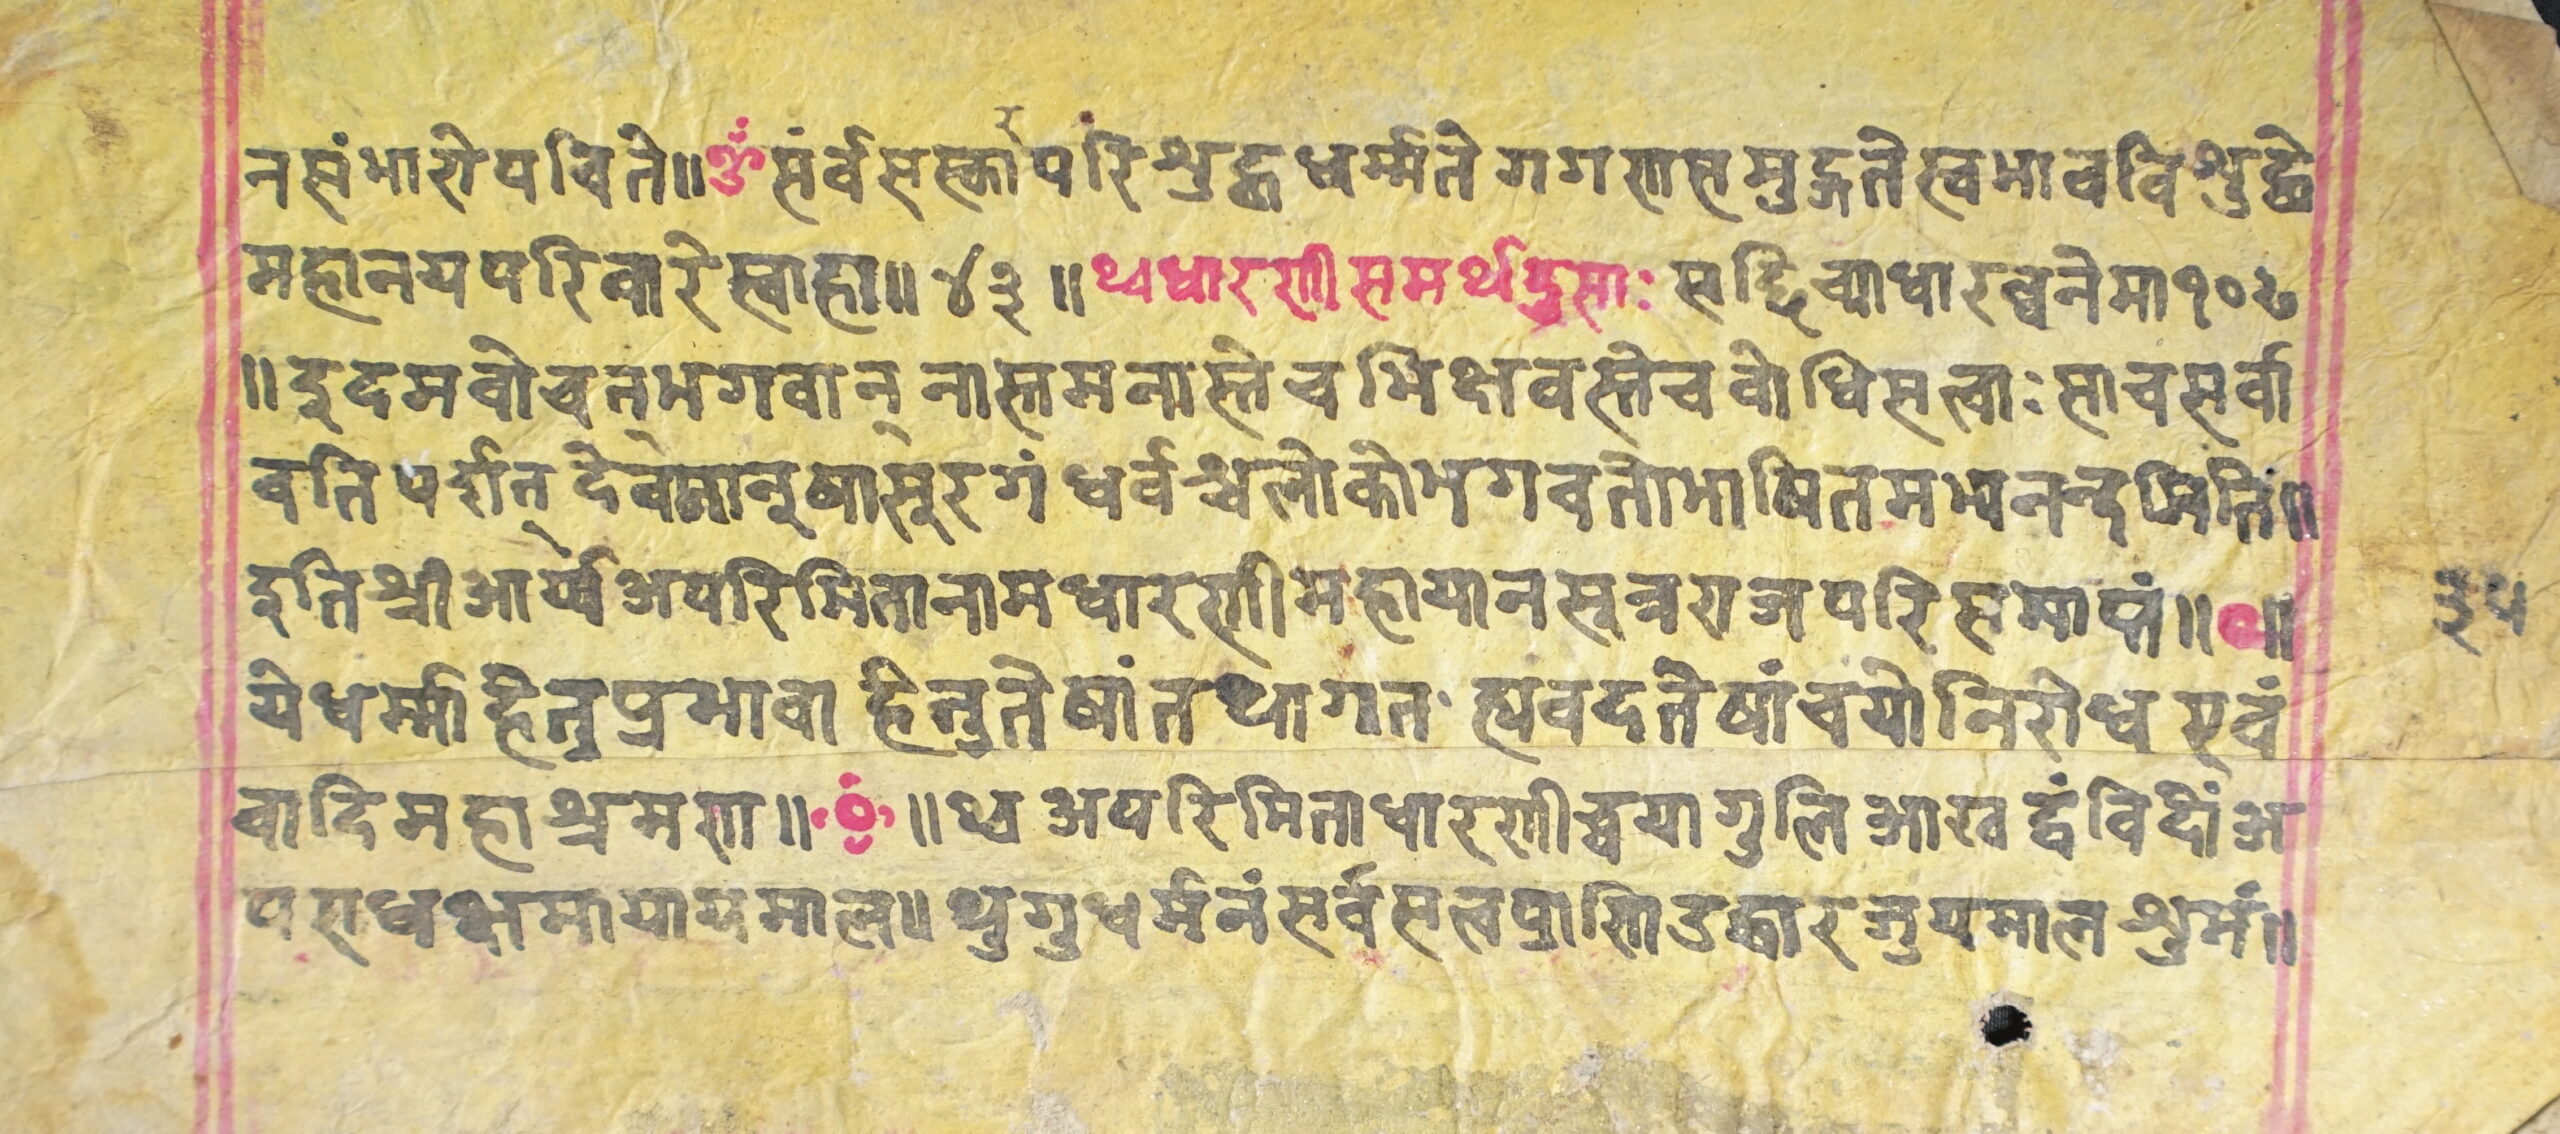 नसंभारोपचिते॥ॐसंर्वसस्कापरिशुद्धधर्म्मते गगणसमुद्गते स्वभावविशुद्धे
र
महानयपरिवारे स्वाहा॥४३॥थ्वधारणीसमर्थदुसाः सद्दिव्याधारन्वनेमा१०८
॥इदमवोचत्भगवान् नास्तमनास्तेचभिक्षवस्तेचवोधिसत्वाः साचसर्वा
वतिपर्रात् देवमानूषासूरगंधर्वश्चलोकोभगवतोभाषितमभ्यनन्दमिति॥
इतिश्रीआर्य्यअपरिमितानामधारणीमहायानसूत्रराजपरिसमाप्तं॥०॥
३५
येधर्म्माहेतुप्रभावा हेतुतेषांतथागत ह्यवदतेषांचयोनिरोध एवं
वादिमहाश्रमण॥॥थ्वअपरिमिताधारणीच्वयागुलिआखद्वंविदों अ
पराधक्षमायायमाल॥थुगुधर्मनंसर्वसत्वप्राणिउद्धारजुयमालशुभं॥